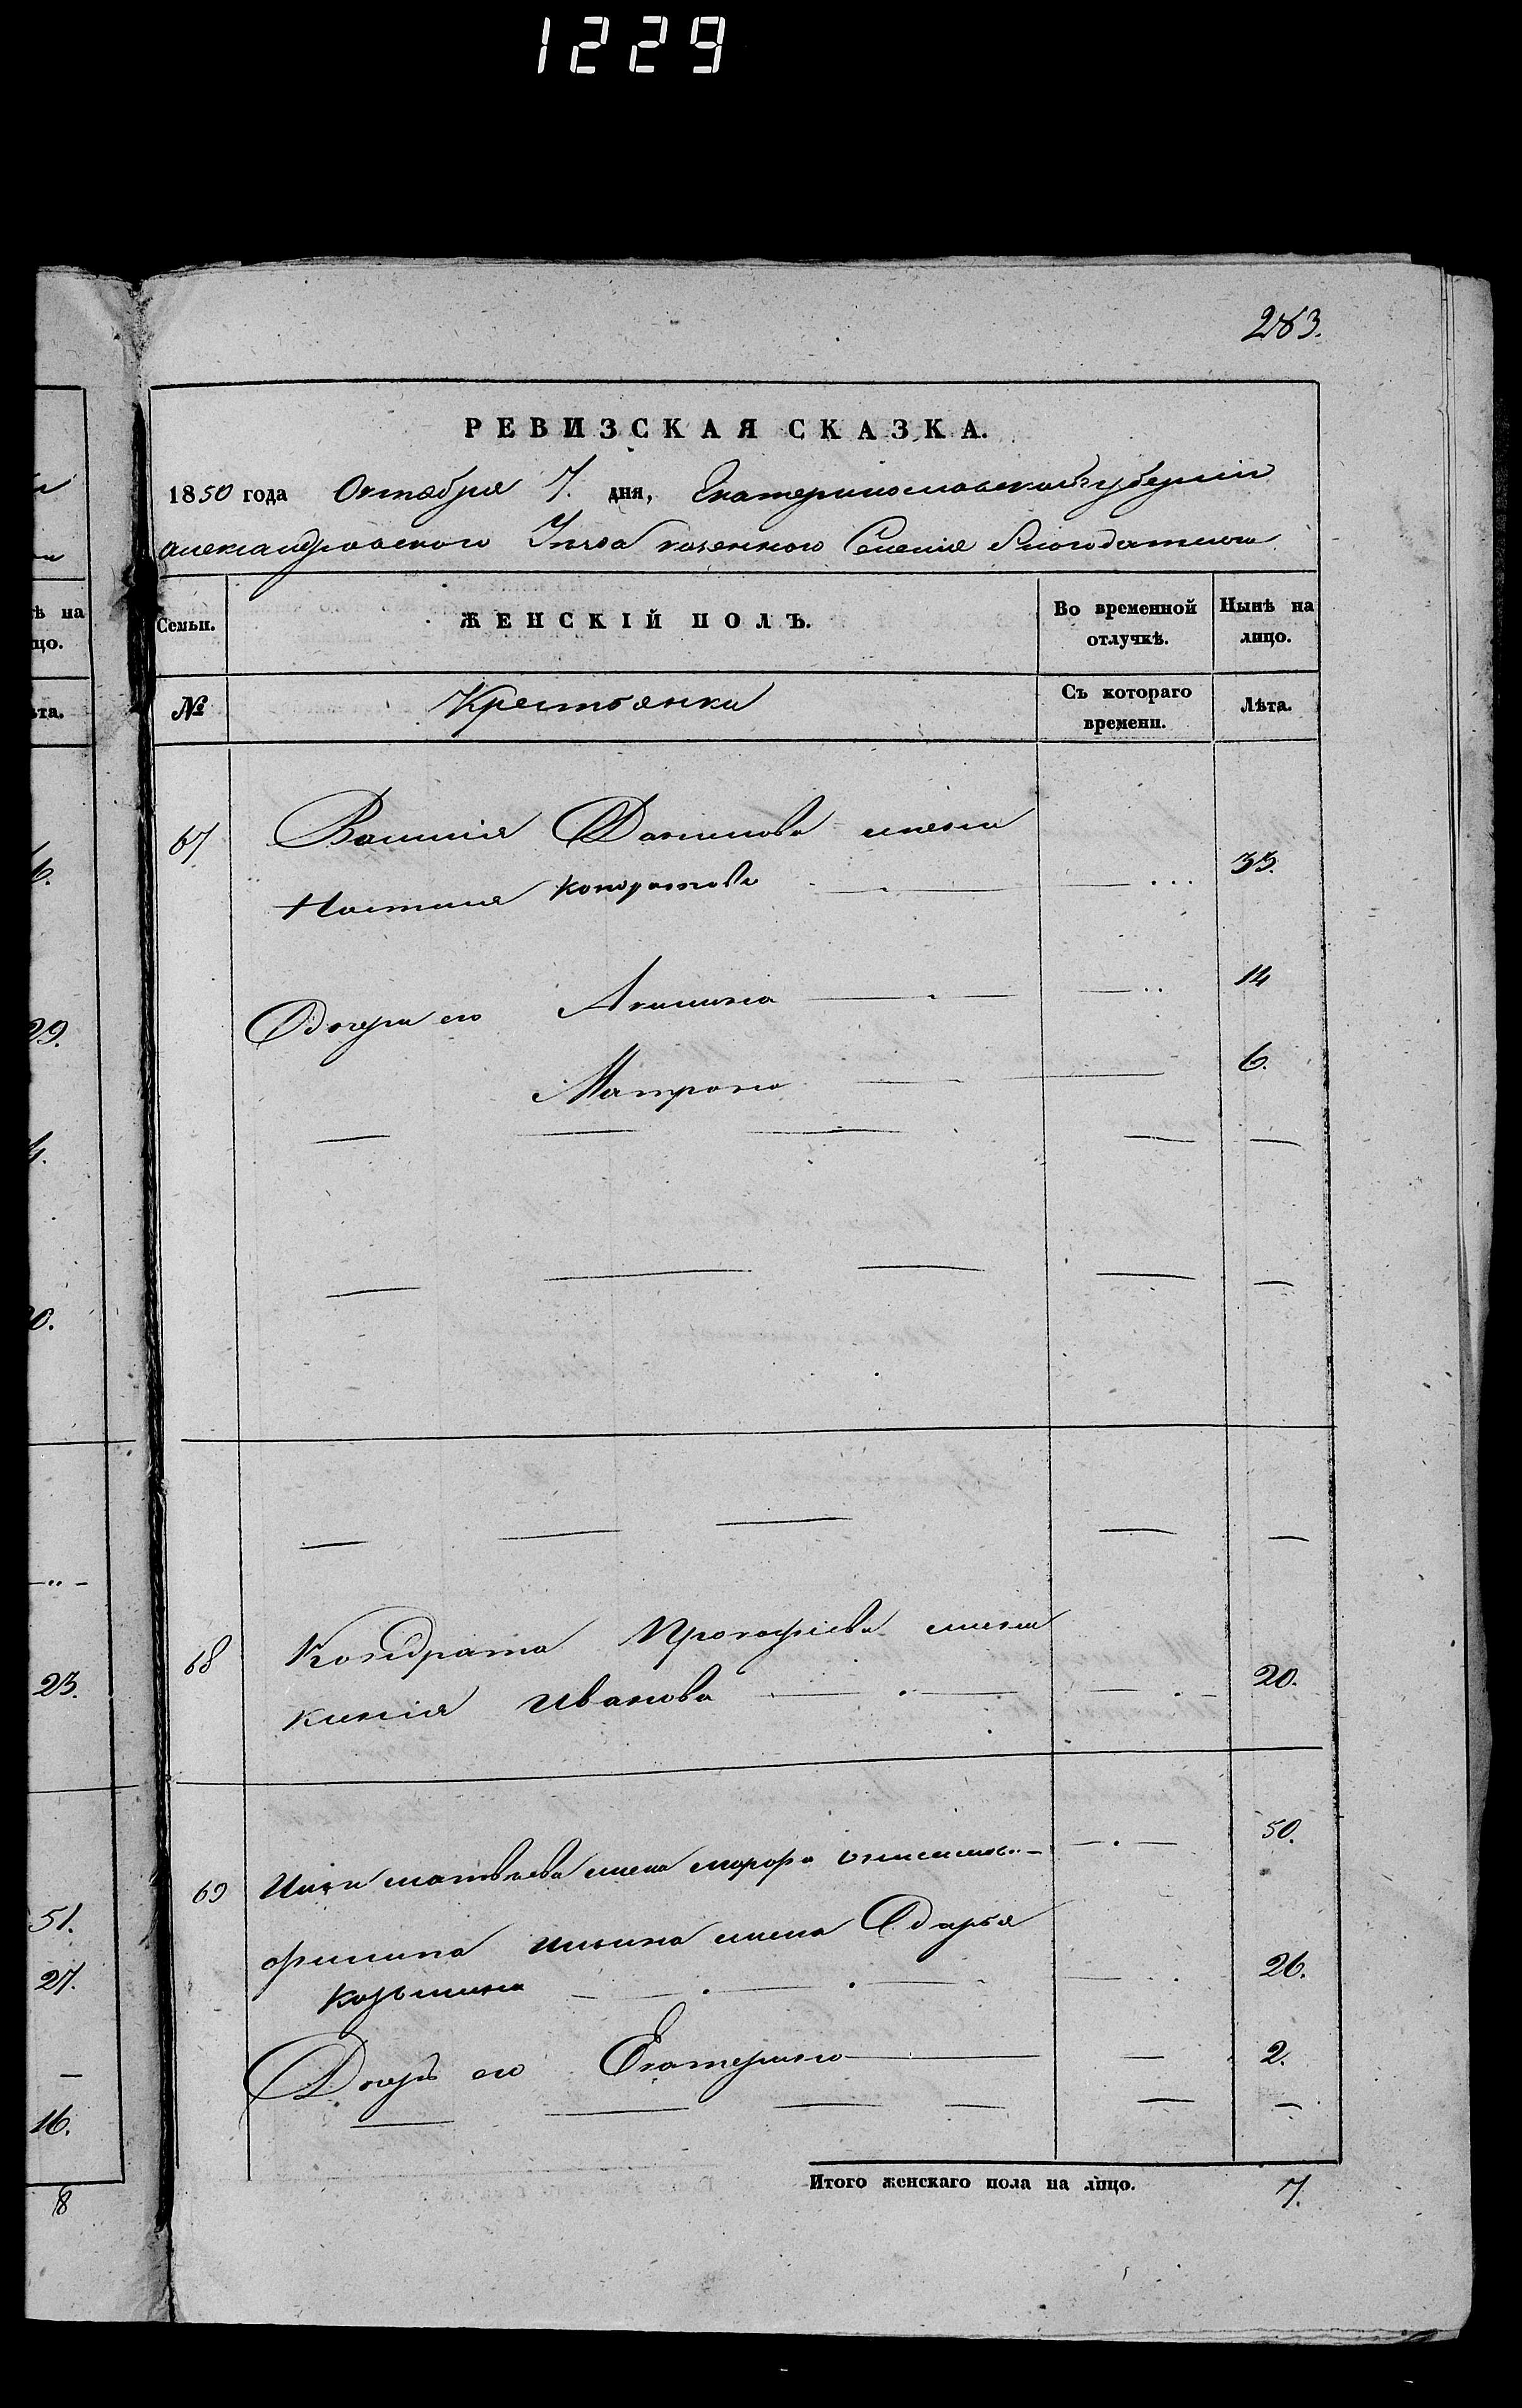 1229
283.
РЕВИЗСКАЯ СКАЗКА.
1850 года Октября 7. дня, Екатеринославской губерніи
Александровскаго Уезда казенного Селенія
Семьи.
ЖЕНСКІЙ ПОЛЪ.
Во временной отлучкѣ.
Нынѣ на лицо.
№
Крестьянки
Съ котораго времени.
Лѣта.
67 Данилова жена
Настасія Кондратова 33.
Дочери его Акилина 14
Матрона 6.
68 Кондрата Прокофіева жена
Иванова 20.
69 Матвеева жена 50.
Филипа Ильина жена Дарья
Козьмина 26.
Дочерь его Екатерина 2.
Итого женскаго пола на лицо. 7.
ѣ на
цо.
ѣта.
6.
29.
4.
0.
23.
51.
27.
16.
8